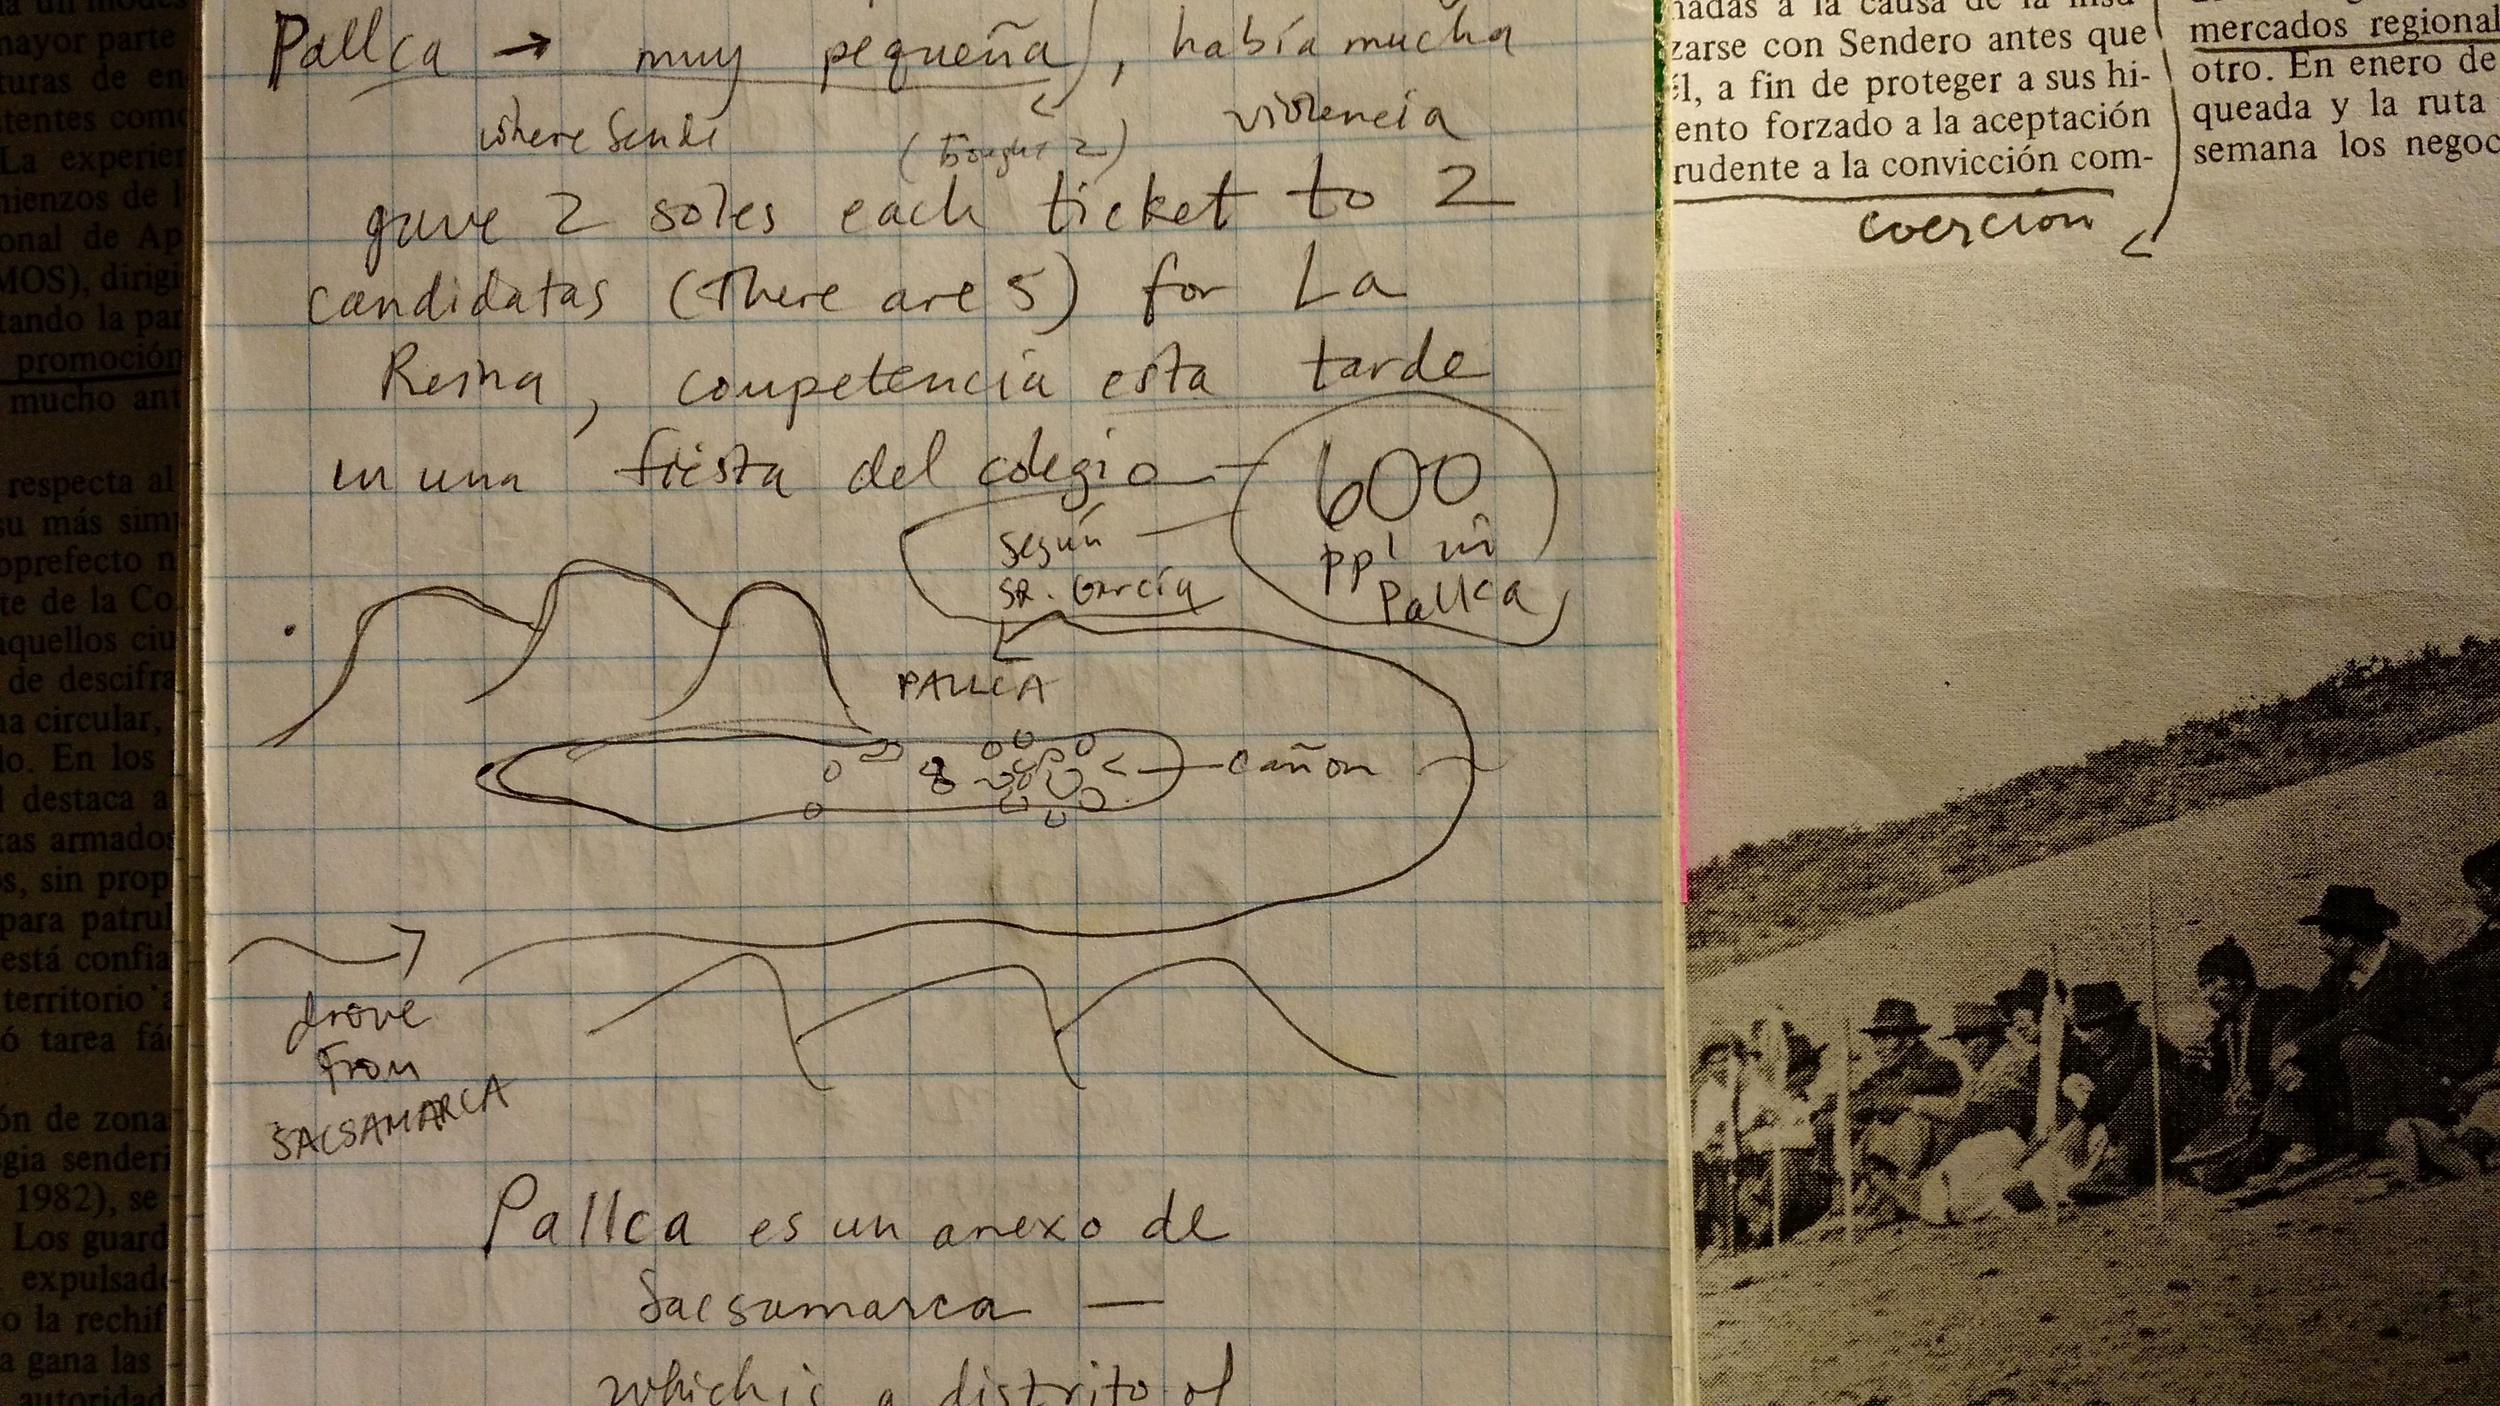 mayor parte
turas de en
La experien
onal de Ap
MOS), dirigi
tando la par
promoción
mucho ant
respecta al
su más sim
oprefecto n
te de la Co
aquellos ciu
de descifra
na circular,
lo. En los
destaca a
tas armados
s, sin prop
para patrul
está confia
territorio a
ó tarea fá
ón de zona
gia senderi
1982), se
Los guard
expulsad
o la rechif
a gana las
autoridad
Pallca → muy pequeña, había mucha
where Sende
(bought 2)
violencia
gave 2 soles each ticket to 2
candidatas (there are 5) for La
Reina, competencia esta tarde
en una fiesta del colegio
600
ppl in
Pallca
según
SR. García
PALLCA
cañon
drove
from
SACSAMARCA
Pallca es un anexo de
Sacsamarca —
which is a distrito of
nadas a la causa de la insu
zarse con Sendero antes que
él, a fin de proteger a sus hi-
ento forzado a la aceptación
rudente a la convicción com-
coerción
mercados regional
otro. En enero de
queada y la ruta
semana los negoc